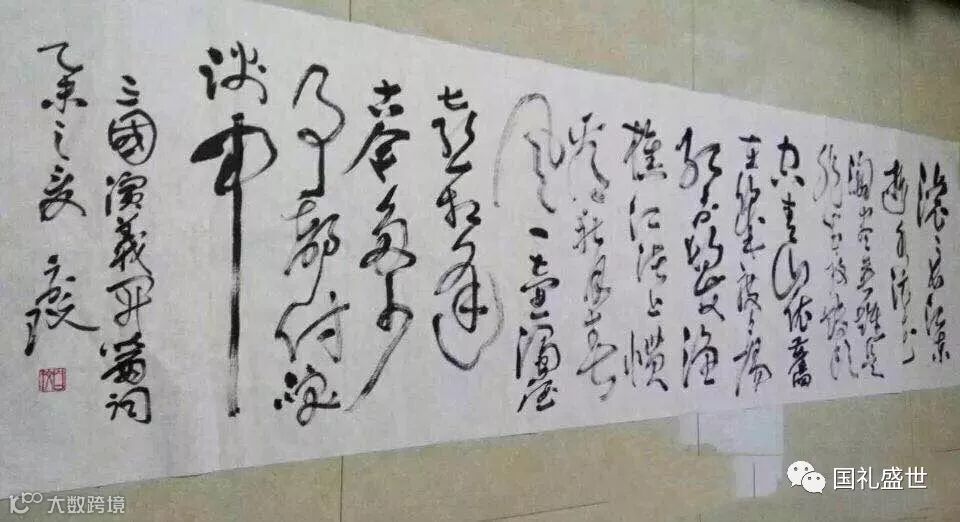 滚滚长江东
逝水浪花
淘尽英雄是
非成败转头
空青山依舊
在几度夕阳
红白发渔
樵江渚上惯
看秋月春
风一壶浊酒
喜相逢
古今多少
事都付笑
谈中
三國演義开篇词
乙未之夏
国礼盛世
大数跨境